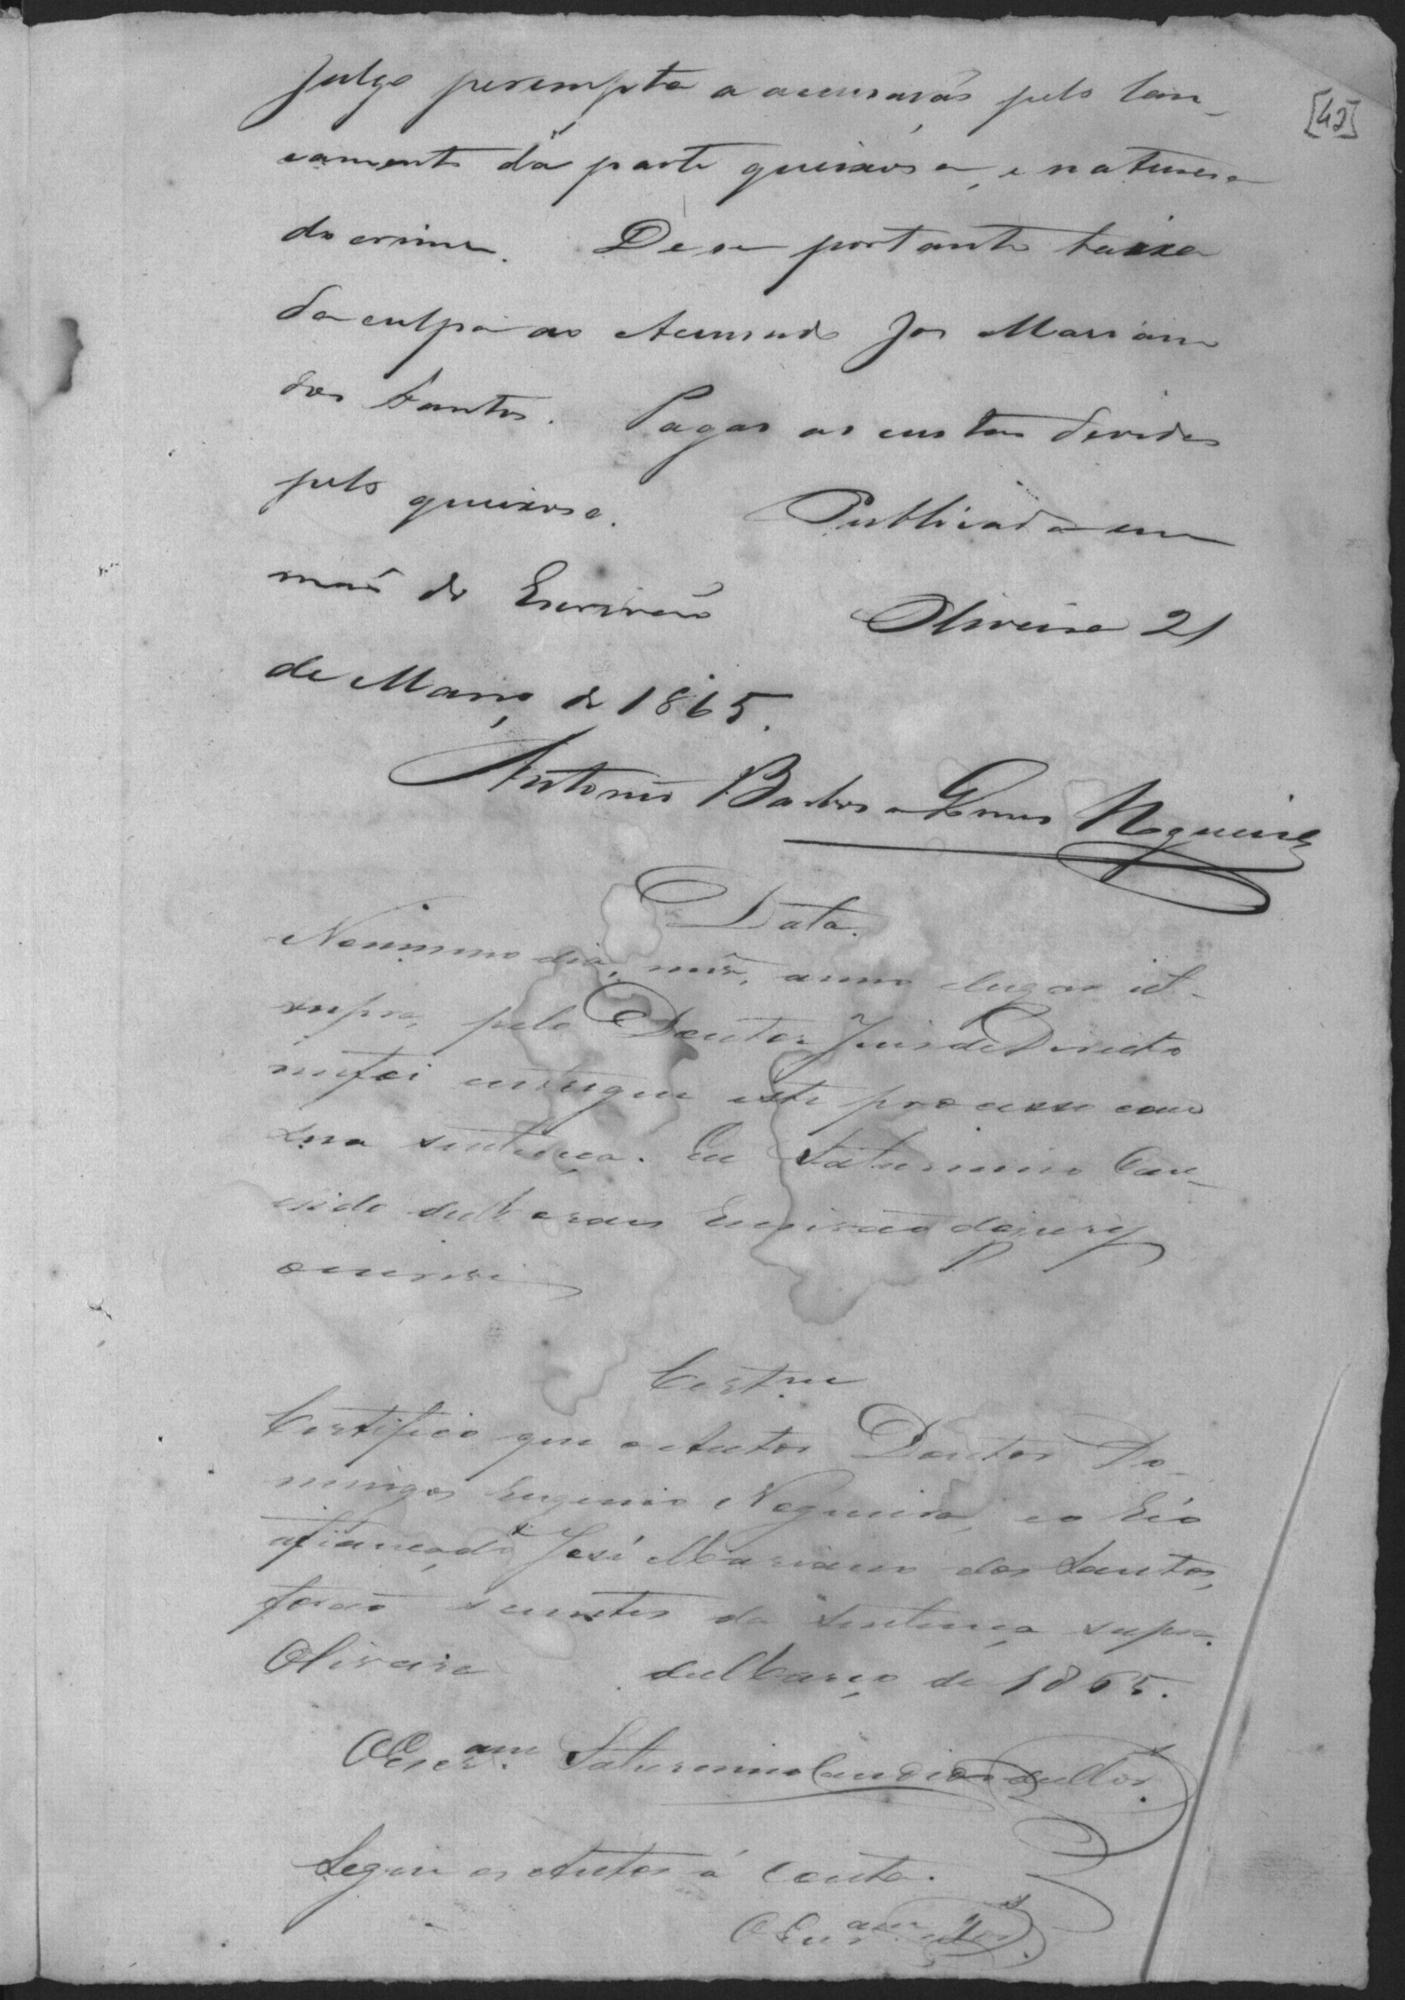 [42]
Julgo perempta a accusação pelo lan-
camento da parte queixosa, e natureza
do crime. Dê se portanto baixa
da culpa ao Accusado José Mariano
dos Santos. Pagas as custas devidas
pelo queixoso. Publicada em
mão do Escrivão Oliveira 21
de Março de 1865.
Antonio Barbosa Gomes Nogueira
Data.
No mesmo dia, mês, anno e lugar ut
supra, pelo Doutor Juis de Direito
me foi entregue este processo com
sua sentença. Eu Saturnino Can-
dido de Moraes Escrivão do jury
o escrevi
Cert.
Certifico que o Autor Doutor Do-
mingos Eugenio Nogueira, e o Réo
afiançado José Mariano dos Santos,
forão scientes da sentença supra.
Oliveira de Março de 1865.
O Escr.am Saturnino Candido de
Segue os Autos á Conta.
O Escr.am